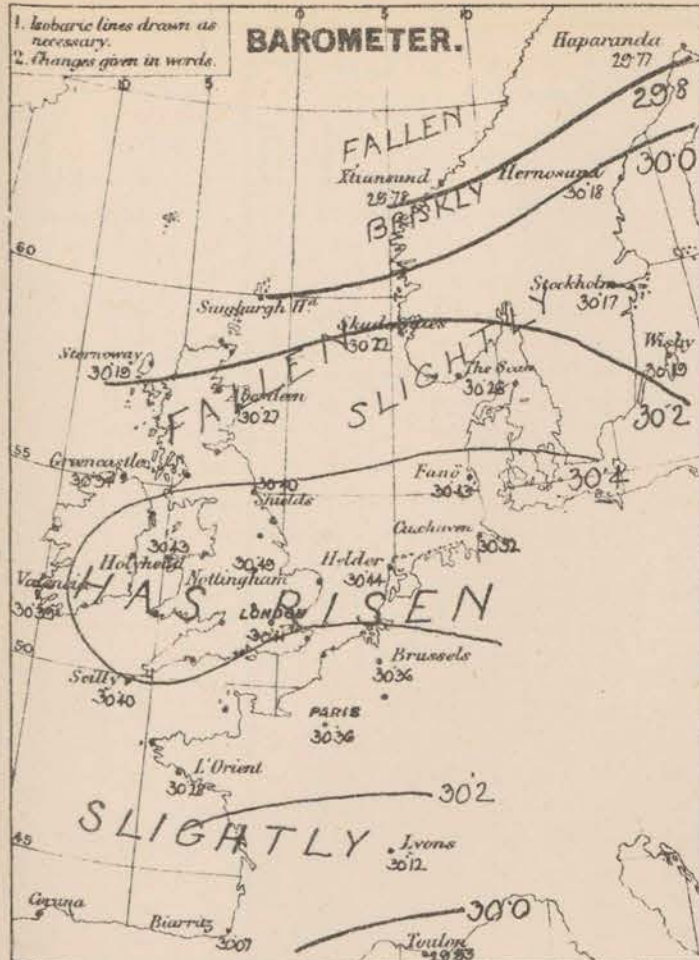 1. Isobaric lines drawn as
necessary.
2. Changes given in words.
BAROMETER.
10
5
0
5
10
Haparanda
29.77
29.8
FALLEN
30.0
Xtiansund
29.78
Hernosund
30.18
BRISKLY
60
Sumburgh Hd.
Stockholm
30.17
Skudesnaes
30.22
Stornoway
30.19
FALLEN
SLIGHTLY
Wisby
30.19
The Scaw
30.28
Aberdeen
30.27
30.2
55
Greencastle
30.40
Shields
Fanö
30.43
30.4
Cuxhaven
30.43
Holyhead
Nottingham
Helder
30.44
Valencia
HAS RISEN
LONDON
50
Brussels
30.36
Scilly
30.40
PARIS
30.36
L'Orient
30.2
SLIGHTLY
45
Lyons
30.12
Coruna
30.0
Biarritz
30.07
Toulon